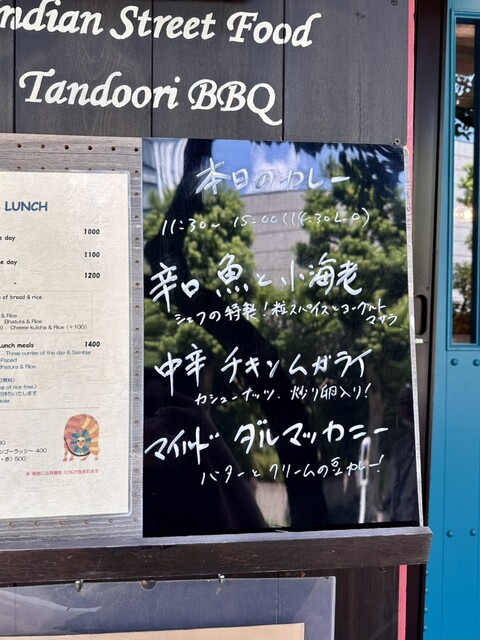 Indian Street Food
Tandoori BBQ
LUNCH
e day 1000
e day 1100
1200
of bread & rice
& Rice
Bhatura & Rice
) Cheese kulcha & Rice (+100)
unch meals 1400
Three curries of the day & Sambar
Papad
Bhatura & Rice
ンゴーラッシー 400
・赤) 500
本日のカレー
11:30~15:00(14:30L.O)
辛口 魚と小海老
シェフの特製!粒スパイスとヨーグルト
マサラ
中辛 チキンムガライ
カシューナッツ、炒り卵入り!
マイルド ダルマッカニー
バターとクリームの豆カレー!